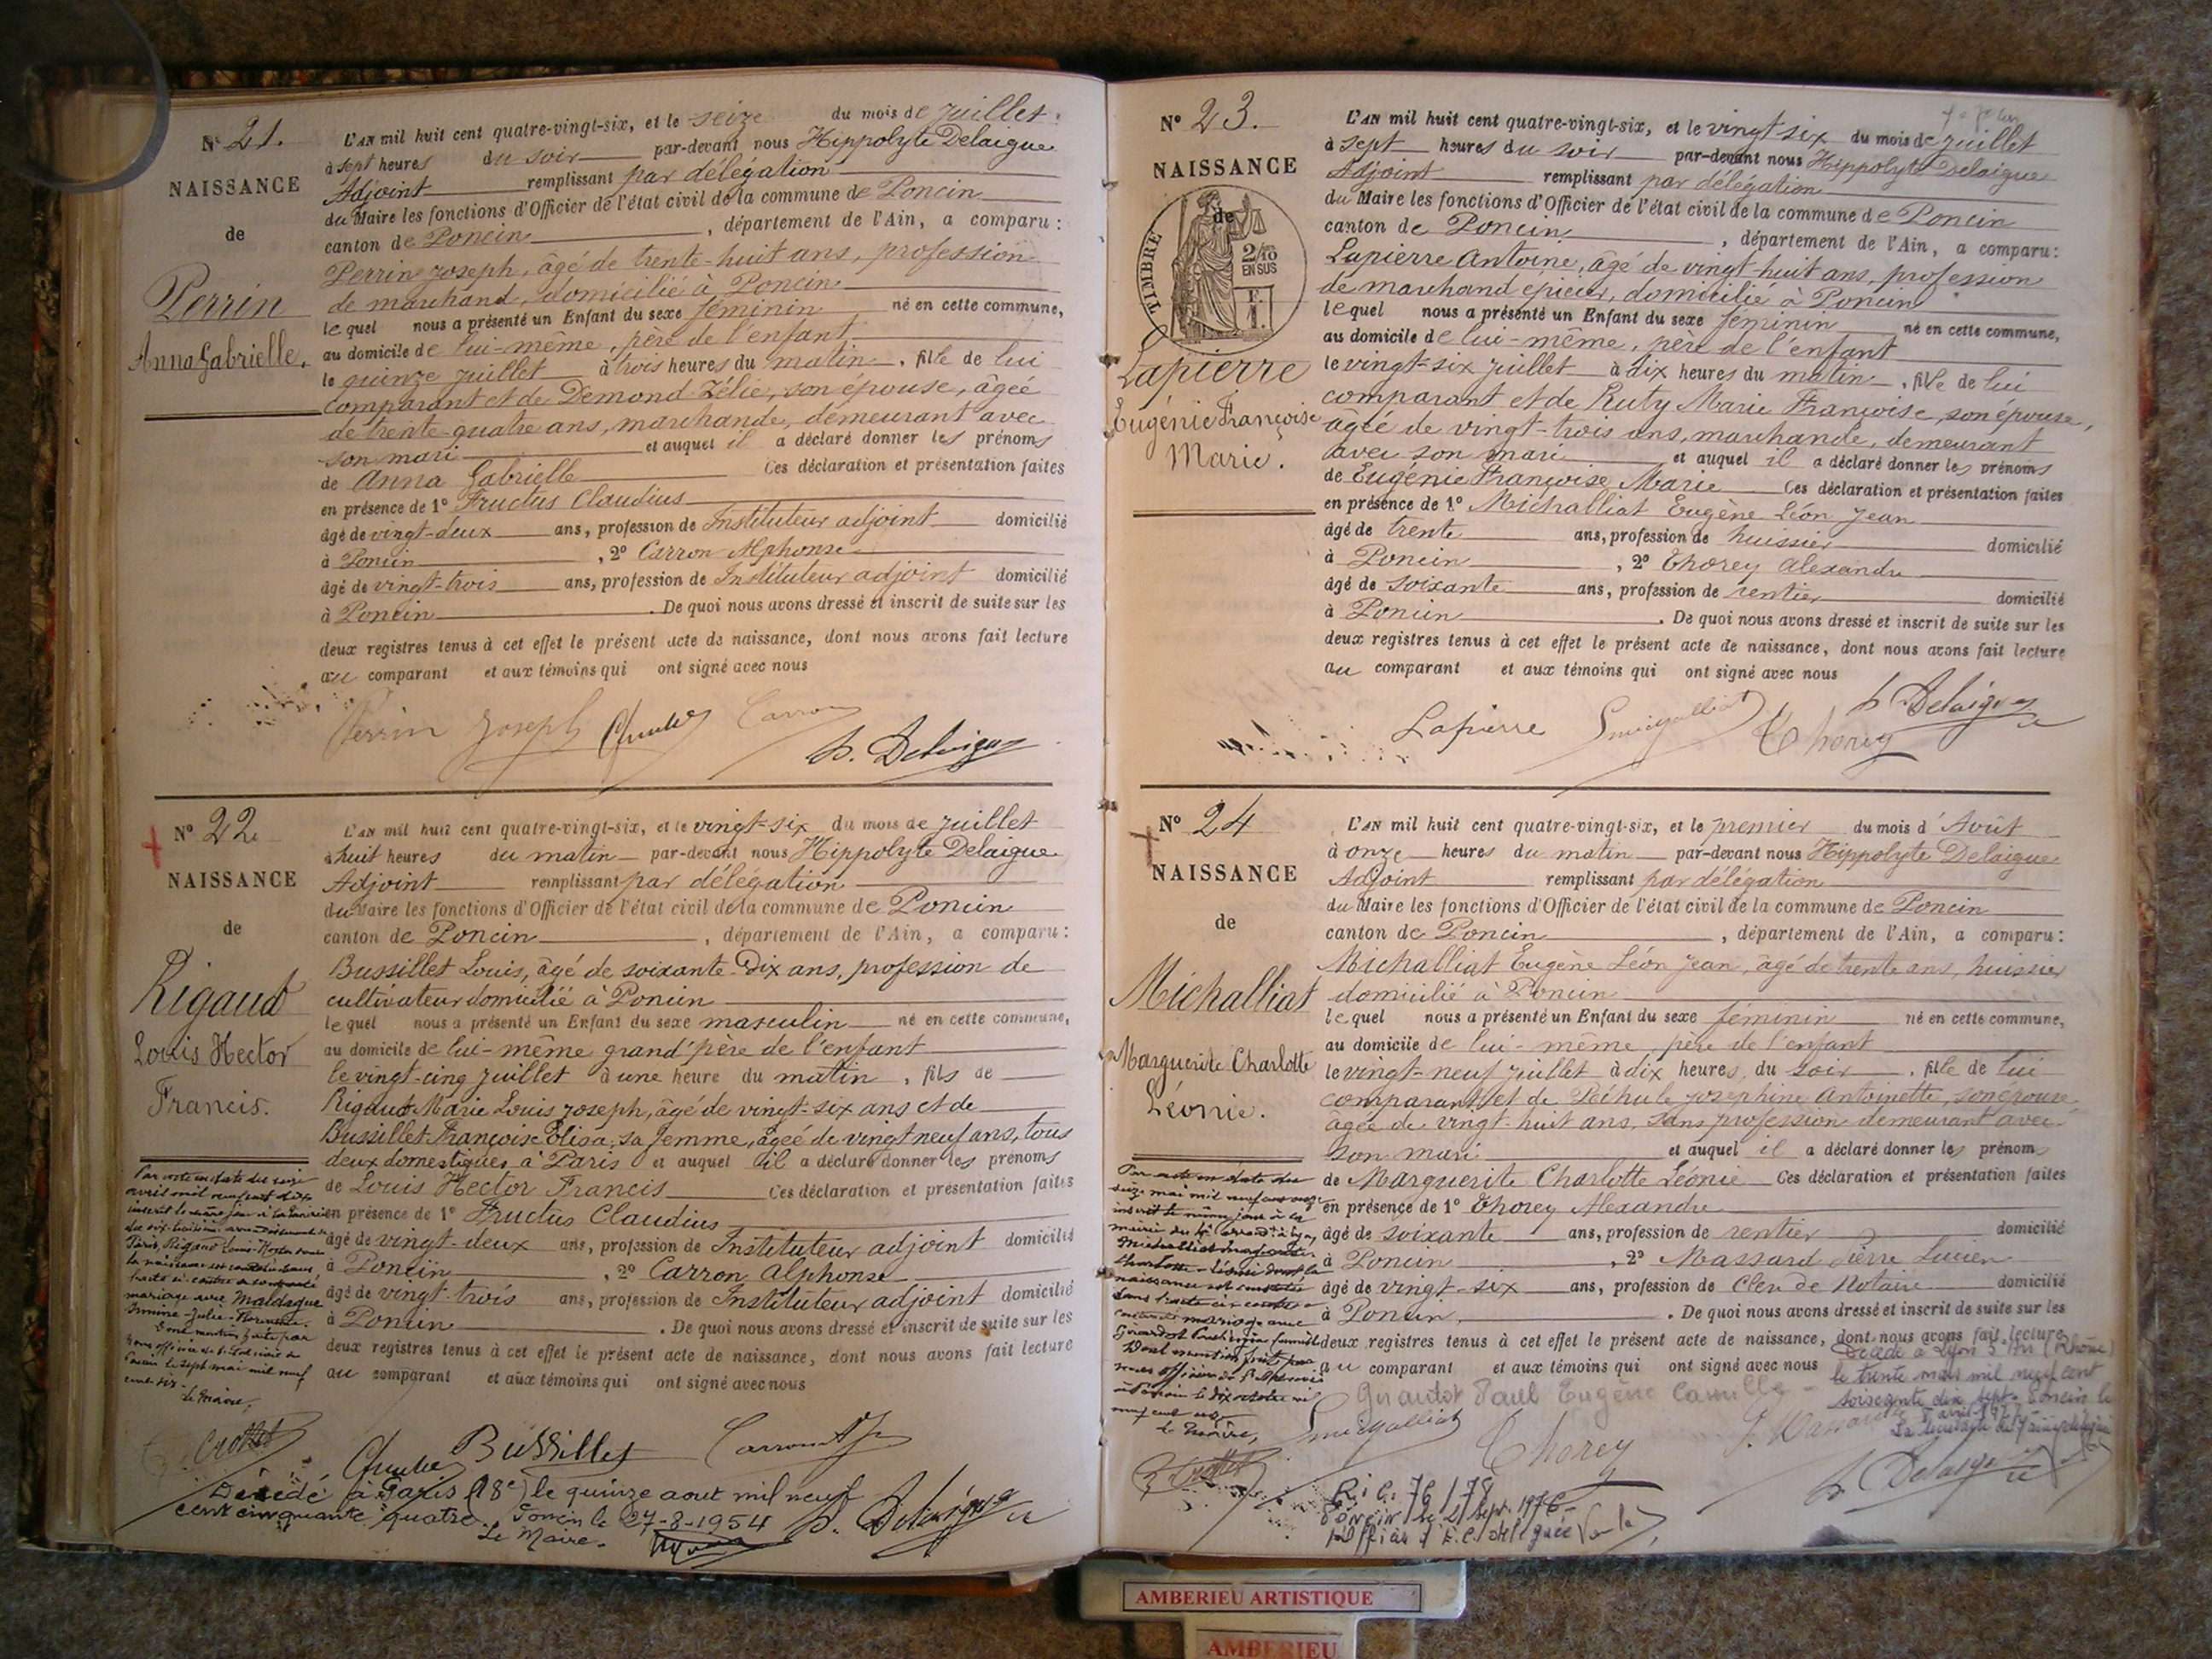 N° 21.
NAISSANCE
de
Perrin
Anna Gabrielle.
L'AN mil huit cent quatre-vingt-six, et le seize du mois de Juillet
à sept heures du soir par-devant nous Hippolyte Delaigue
Adjoint remplissant par délégation
du Maire les fonctions d'Officier de l'état civil de la commune de Poncin
canton de Poncin, département de l'Ain, a comparu :
Perrin Joseph, âgé de trente-huit ans, profession
de marchand, domicilié à Poncin
lequel nous a présenté un Enfant du sexe féminin né en cette commune,
au domicile de lui-même, père de l'enfant
le quinze juillet à trois heures du matin, fille de lui
comparant et de Demond Zélie, son épouse, âgée
de trente-quatre ans, marchande, demeurant avec
son mari et auquel il a déclaré donner les prénoms
de Anna Gabrielle Ces déclaration et présentation faites
en présence de 1° Fructus Claudius
âgé de vingt-deux ans, profession de Instituteur adjoint domicilié
à Poncin, 2° Carron Alphonse
âgé de vingt-trois ans, profession de Instituteur adjoint domicilié
à Poncin. De quoi nous avons dressé et inscrit de suite sur les
deux registres tenus à cet effet le présent acte de naissance, dont nous avons fait lecture
au comparant et aux témoins qui ont signé avec nous
Perrin Joseph Carron
h. Delaigue
N° 22.
NAISSANCE
de
Rigaud
Louis Hector
Francis.
L'AN mil huit cent quatre-vingt-six, et le vingt-six du mois de Juillet
à huit heures du matin par-devant nous Hippolyte Delaigue
Adjoint remplissant par délégation
du Maire les fonctions d'Officier de l'état civil de la commune de Poncin
canton de Poncin, département de l'Ain, a comparu :
Bussillet Louis, âgé de soixante-Dix ans, profession de
cultivateur domicilié à Poncin
lequel nous a présenté un Enfant du sexe masculin né en cette commune,
au domicile de lui-même grand'père de l'enfant
le vingt-cinq Juillet à une heure du matin, fils de
Rigaud Marie Louis Joseph, âgé de vingt-six ans et de
Bussillet Françoise Elisa, sa femme, âgée de vingt neuf ans, tous
deux domestiques à Paris et auquel il a déclaré donner les prénoms
de Louis Hector Francis Ces déclaration et présentation faites
en présence de 1° Fructus Claudius
âgé de vingt-deux ans, profession de Instituteur adjoint domicilié
à Poncin, 2° Carron Alphonse
âgé de vingt-trois ans, profession de Instituteur adjoint domicilié
à Poncin. De quoi nous avons dressé et inscrit de suite sur les
deux registres tenus à cet effet le présent acte de naissance, dont nous avons fait lecture
au comparant et aux témoins qui ont signé avec nous
Par acte en date du seize
avril mil neuf cent dix
inscrit le même jour à la mairie
du dix-huitième arrondissement de
Paris, Rigaud Louis-Hector
la naissance est constatée dans
l'acte ci-contre a contracté
mariage avec Maldague
Julie-Florence.
Dont mention faite par
nous officier de l'état civil à
Poncin le sept mai mil neuf
cent dix.
Le Maire,
Bussillet
Décédé à Paris (18e) le quinze aout mil neuf
cent cinquante quatre. Poncin le 27-8-1954 h. Delaigue
Le Maire.
N° 23.
NAISSANCE
de
TIMBRE
2/10
EN SUS
Lapierre
Eugénie Françoise
Marie.
L'AN mil huit cent quatre-vingt-six, et le vingt-six du mois de Juillet
à sept heures du soir par-devant nous Hippolyte Delaigue
Adjoint remplissant par délégation
du Maire les fonctions d'Officier de l'état civil de la commune de Poncin
canton de Poncin, département de l'Ain, a comparu :
Lapierre Antoine, âgé de vingt-huit ans, profession
de marchand épicier, domicilié à Poncin
lequel nous a présenté un Enfant du sexe féminin né en cette commune,
au domicile de lui-même, père de l'enfant
le vingt-six juillet à dix heures du matin, fille de lui
comparant et de Ruty Marie Françoise, son épouse,
âgée de vingt-trois ans, marchande, demeurant
avec son mari et auquel il a déclaré donner les prénoms
de Eugénie Françoise Marie Ces déclaration et présentation faites
en présence de 1° Michalliat Eugène Léon Jean
âgé de trente ans, profession de huissier domicilié
à Poncin, 2° Thorey Alexandre
âgé de soixante ans, profession de rentier domicilié
à Poncin. De quoi nous avons dressé et inscrit de suite sur les
deux registres tenus à cet effet le présent acte de naissance, dont nous avons fait lecture
au comparant et aux témoins qui ont signé avec nous
Lapierre Thorey h. Delaigue
N° 24
NAISSANCE
de
Michalliat
Marguerite Charlotte
Léonie.
L'AN mil huit cent quatre-vingt-six, et le premier du mois d'Août
à onze heures du matin par-devant nous Hippolyte Delaigue
Adjoint remplissant par délégation
du Maire les fonctions d'Officier de l'état civil de la commune de Poncin
canton de Poncin, département de l'Ain, a comparu :
Michalliat Eugène Léon Jean, âgé de trente ans, huissier
domicilié à Poncin
lequel nous a présenté un Enfant du sexe féminin né en cette commune,
au domicile de lui-même, père de l'enfant
le vingt-neuf juillet à dix heures du soir, fille de lui
comparant et de Joséphine Antoinette, son épouse,
âgée de vingt-huit ans, sans profession demeurant avec
son mari et auquel il a déclaré donner les prénoms
de Marguerite Charlotte Léonie Ces déclaration et présentation faites
en présence de 1° Thorey Alexandre
âgé de soixante ans, profession de rentier domicilié
à Poncin, 2° Massard Pierre Lucien
âgé de vingt-six ans, profession de Clerc de Notaire domicilié
à Poncin. De quoi nous avons dressé et inscrit de suite sur les
deux registres tenus à cet effet le présent acte de naissance, dont nous avons fait lecture
au comparant et aux témoins qui ont signé avec nous
Par acte en date du
seize mai mil neuf cent onze
inscrit le même jour à la
mairie du arrondt à Lyon
Michalliat Marguerite
Charlotte-Léonie dont la
naissance est constatée
dans l'acte ci-contre a
contracté mariage avec
Girardot Paul Eugène Camille
Dont mention faite par
nous officier de l'état civil
à Poncin le dix octobre mil
neuf cent onze
Le Maire,
Décédée à Lyon (Rhône)
le trente mars mil neuf cent
soixante dix sept. Poncin le
avril 1977
Girardot Paul Eugène Camille
Thorey
h. Delaigue
Poncin le Sept. 1976
AMBERIEU ARTISTIQUE
AMBERIEU